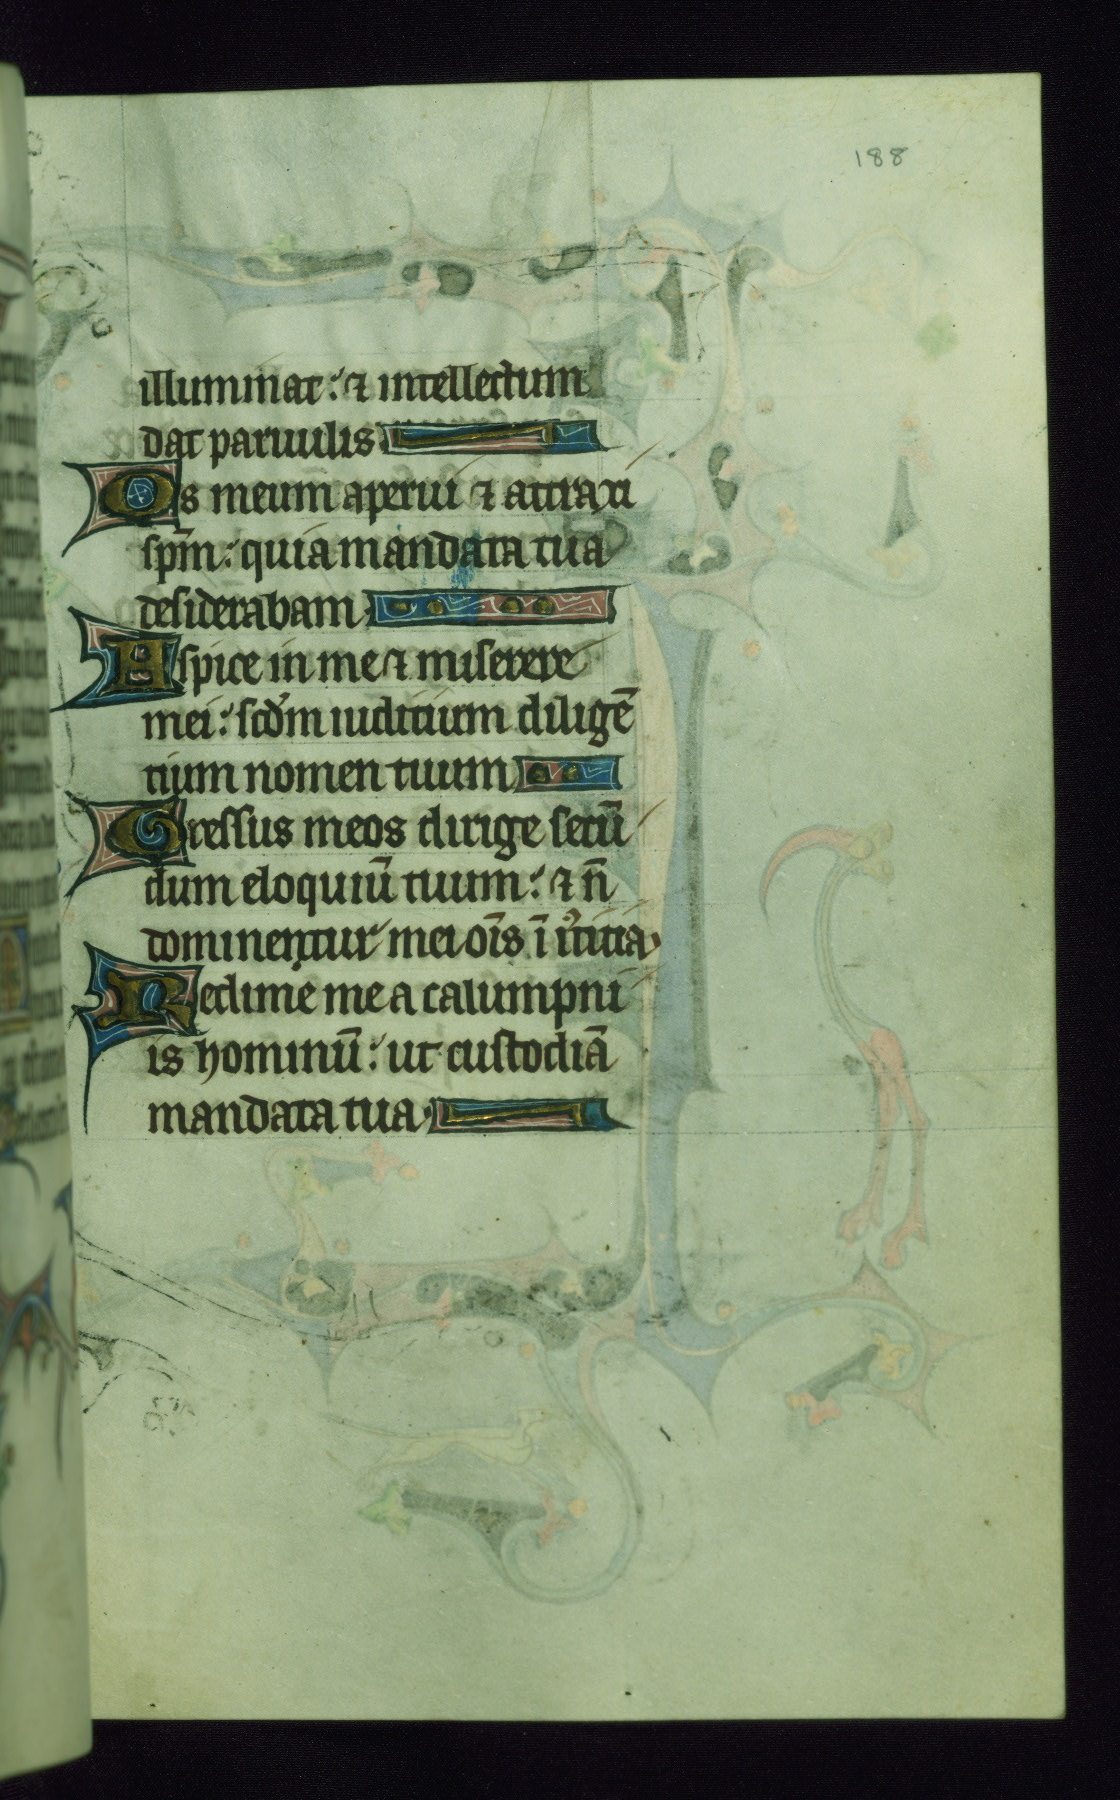 188
illuminat: ⁊ intellectum
dat paruulis
Os meum aperui ⁊ attraxi
sp̄m: quia mandata tua
desiderabam
Aspice in me ⁊ miserere
mei: scd̓m iudicium diligē
tium nomen tuum
Gressus meos dirige secū
dum eloquiū tuum: ⁊ n̄
dominentur mei oīs ī
Redime me a calumpni
is hominū: ut custodiā
mandata tua